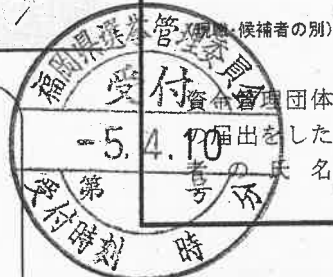 (現職・候補者の別)
福岡県選挙管理委員会
受付
-5.4.10
第 号
受付時刻 時 分
資金管理団体
の届出をした
者の氏名